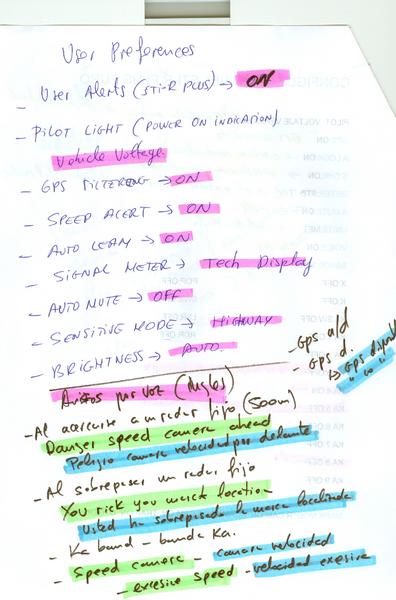 User Preferences
- User Alerts (STI-R PLUS) → ON
- PILOT LIGHT (POWER ON INDICATION)
Vehicle Voltage
- GPS FILTERING → ON
- SPEED ALERT → ON
- AUTO LEARN → ON
- SIGNAL METER → Tech Display
- AUTO MUTE → OFF
- SENSITIVE MODE → HIGHWAY
- BRIGHTNESS → AUTO.
- GPS
- GPS d.
→ GPS
Avisos por voz (Ingles)
- Al acercarse a un radar fijo (500m)
Danger speed camera ahead
Peligro camara velocidad por delante
- Al sobrepasar un radar fijo
You location
Usted ha sobrepasado la marca localizada
- Ka band - banda Ka.
- Speed camera - camara velocidad
- excesive speed - velocidad exesiva